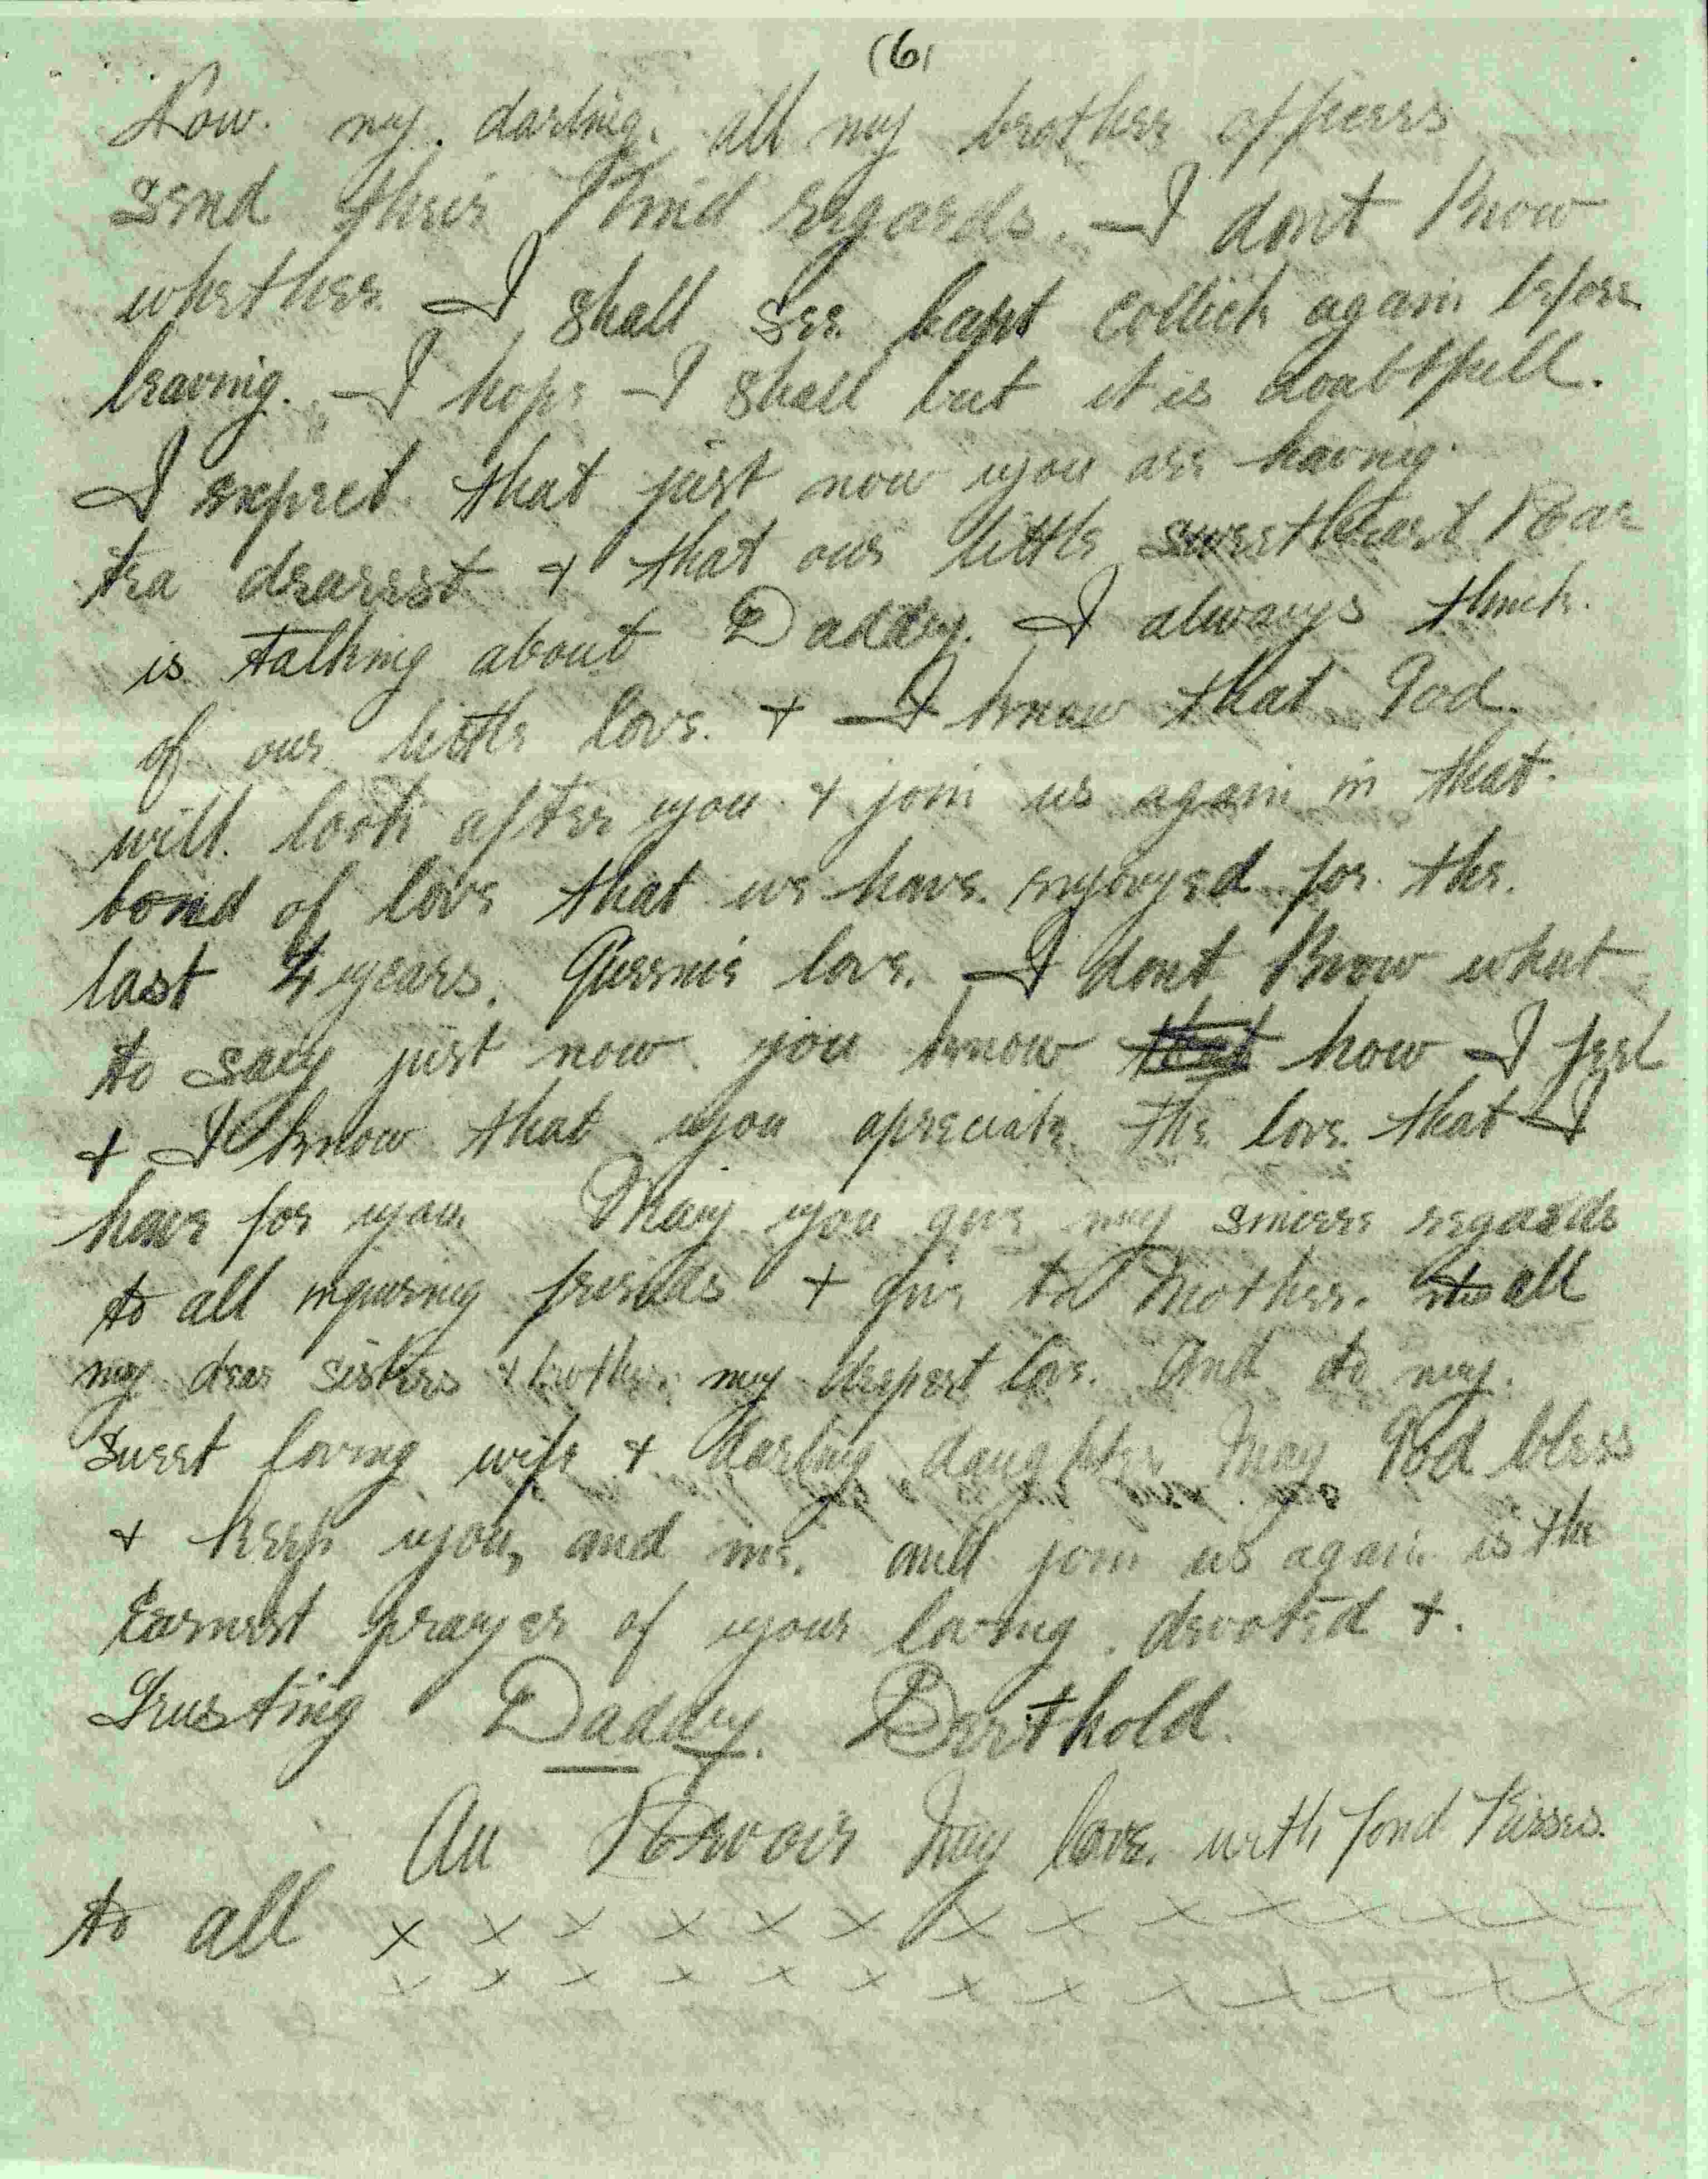 (6)
Now. my. darling. all my brother officers
send their Kind regards. I dont Know
whether I shall see Capt Collick again before
leaving. I hope I shall but it is doubtfull.
I expect that just now you are having
tea dearest & that our little sweetheart
is talking about Daddy. I always think.
of our little love. & I know that God.
will. look after you & join us again in that.
bond of love that we have. enjoyed for. the.
last 4 years. Queenie love. I dont Know what
to say just now. you know that how I feel
& I know that you apreciate. the love. that I
have for you. May you give my sincere regards
to all inquiring friends & give to Mother. to all
my dear sisters & brother. my deepest love. And to my.
Sweet loving wife & darling daughter May God bless
& Keep you, and me. and join us again is the
Earnest prayer of your loving. devoted &.
Trusting Daddy. Berthold.
Au Revoir My love. with fond Kisses.
to all x x x x x x x x x x x x x x
x x x x x x x x x x x x x x